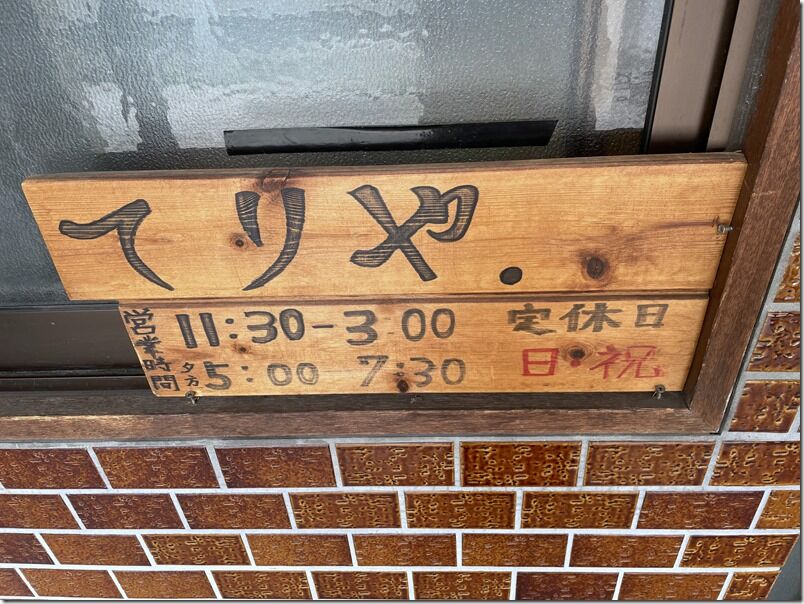 てりや.
営業時間
11:30-3 00
夕方5:00 7:30
定休日
日・祝